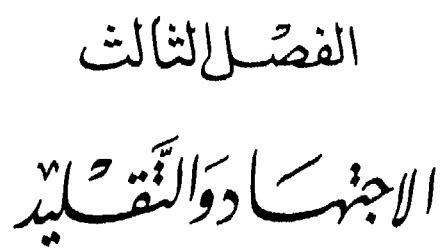 الفصل الثالث
الاجتهاد والتَّقليد